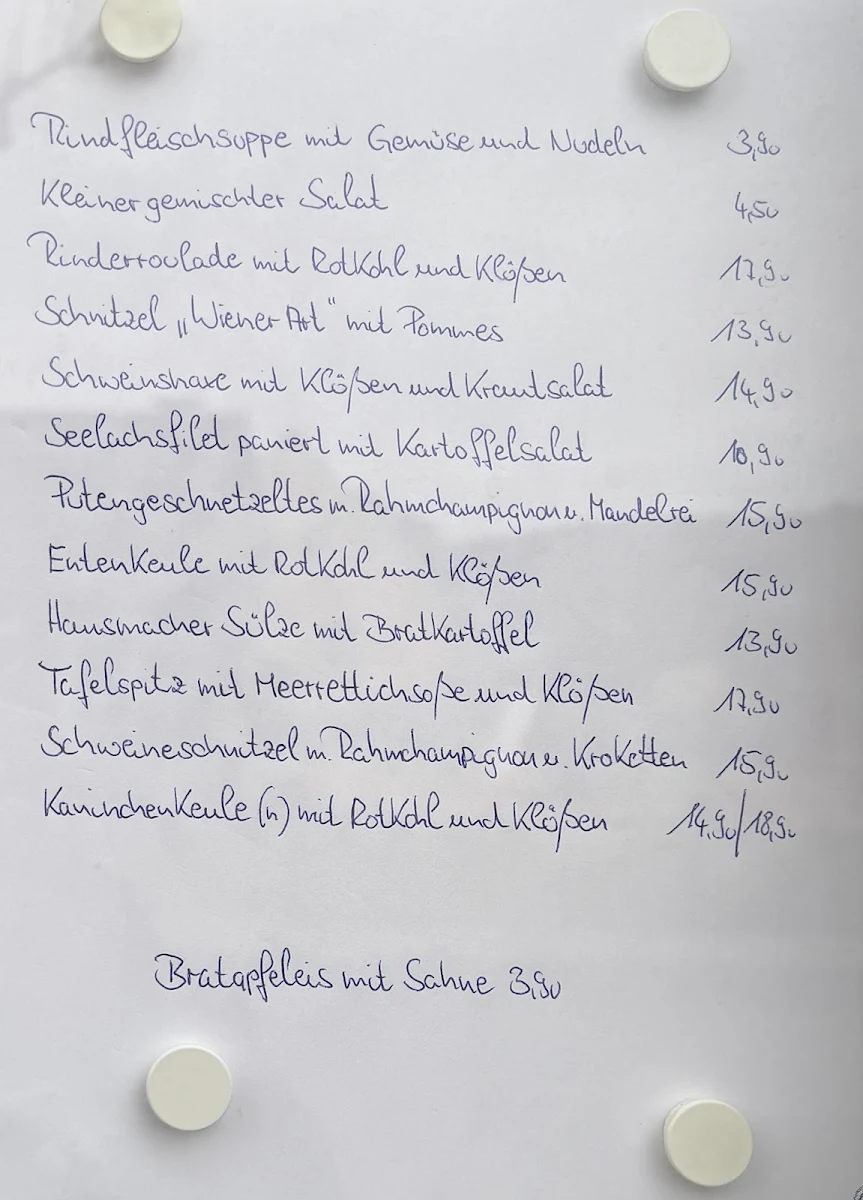 Rindfleischsuppe mit Gemüse und Nudeln 3,90
Kleiner gemischter Salat 4,50
Rinderroulade mit Rotkohl und Klößen 17,90
Schnitzel „Wiener Art" mit Pommes 13,90
Schweinshaxe mit Klößen und Krautsalat 14,90
Seelachsfilet paniert mit Kartoffelsalat 10,90
Putengeschnetzeltes m. Rahmchampignon u. Mandelrei 15,90
Entenkeule mit Rotkohl und Klößen 15,90
Hausmacher Sülze mit Bratkartoffel 13,90
Tafelspitz mit Meerrettichsoße und Klößen 17,90
Schweineschnitzel m. Rahmchampignon u. Kroketten 15,90
Kaninchenkeule (n) mit Rotkohl und Klößen 14,90/18,90
Bratapfeleis mit Sahne 3,90